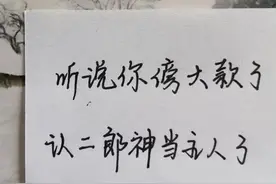 听说你傍大款了
认二郎神当主人了